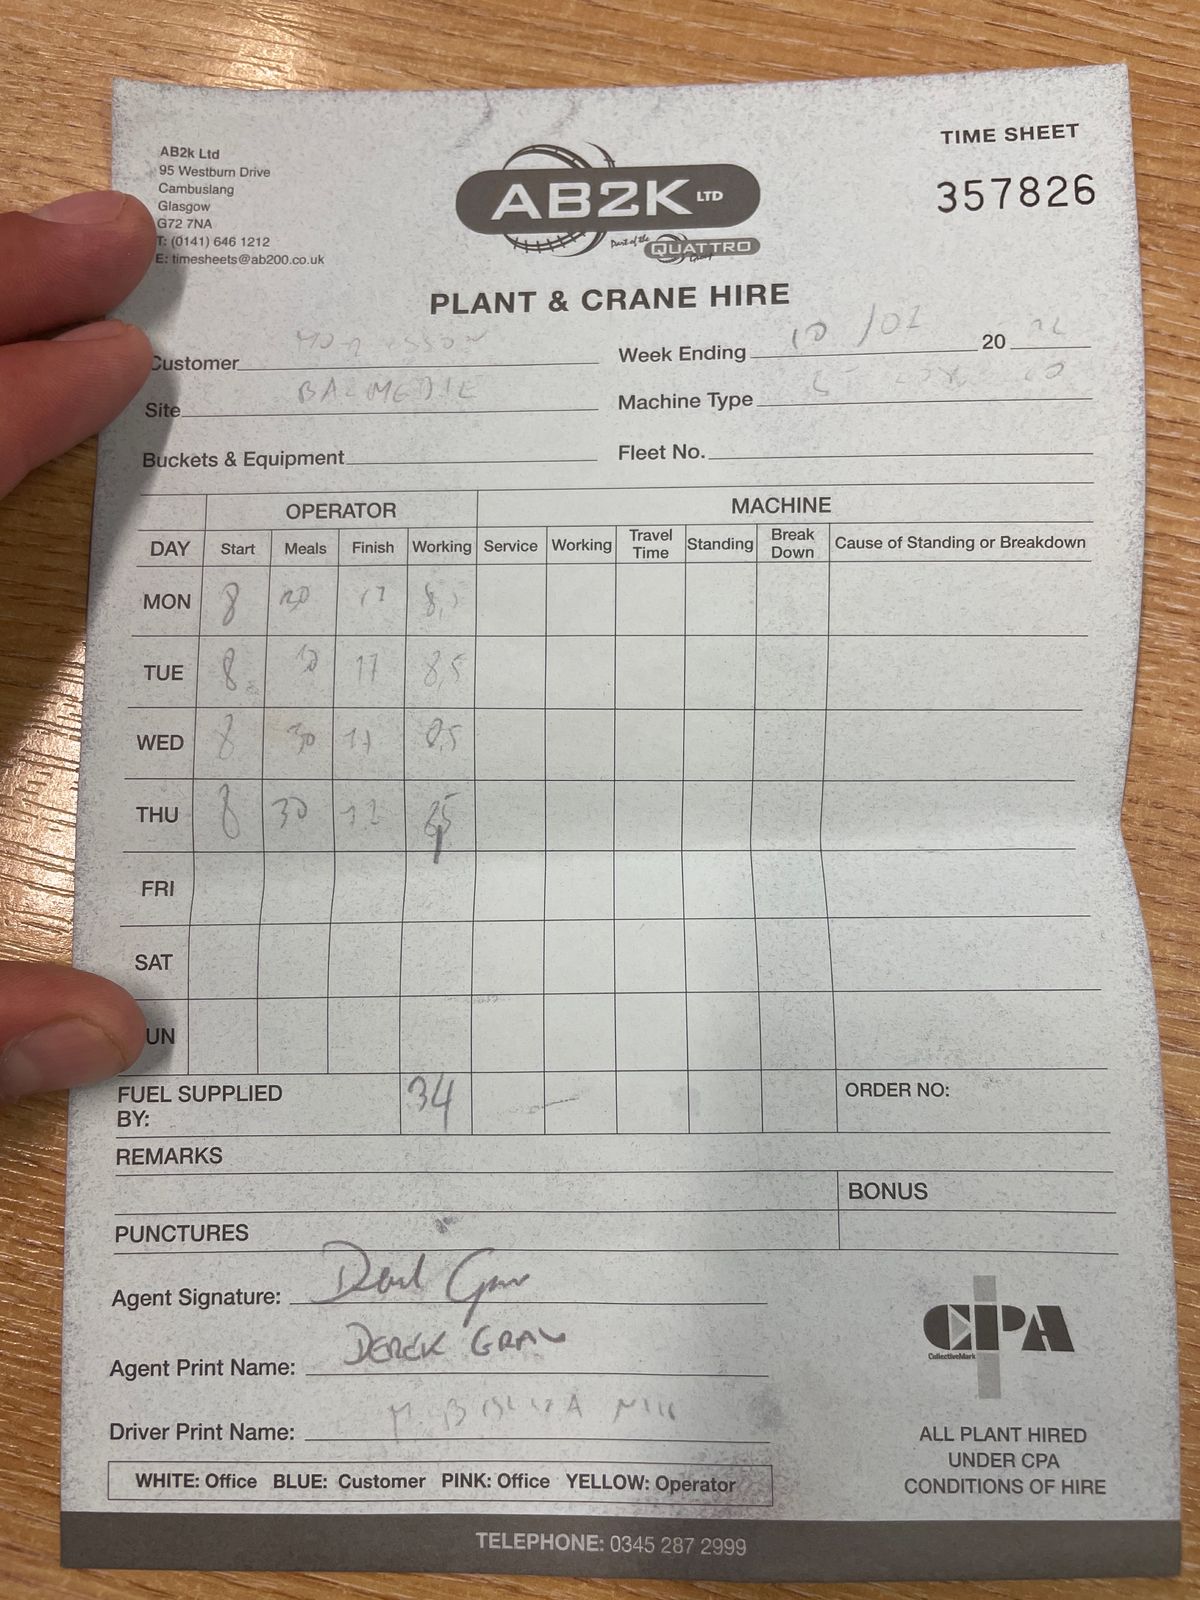 AB2k Ltd
95 Westburn Drive
Cambuslang
Glasgow
G72 7NA
T: (0141) 646 1212
E: timesheets@ab200.co.uk
AB2K LTD
Part of the QUATTRO Group
TIME SHEET
357826
PLANT & CRANE HIRE
Customer
Week Ending 10 / 02 20 22
Site BALMEDIE
Machine Type
Buckets & Equipment
Fleet No.
OPERATOR MACHINE
DAY Start Meals Finish Working Service Working Travel Time Standing Break Down Cause of Standing or Breakdown
MON 8 30 17 8.5
TUE 8 30 17 85
WED 8 30 17 85
THU 8 30 85
FRI
SAT
UN
FUEL SUPPLIED BY: 34 ORDER NO:
REMARKS
BONUS
PUNCTURES
Agent Signature:
Agent Print Name: DEREK GRAY
Driver Print Name:
CPA
CollectiveMark
WHITE: Office BLUE: Customer PINK: Office YELLOW: Operator
ALL PLANT HIRED
UNDER CPA
CONDITIONS OF HIRE
TELEPHONE: 0345 287 2999